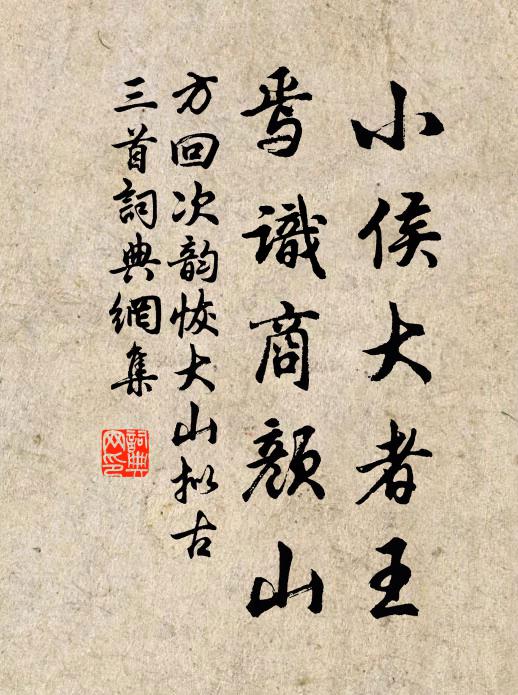 小侯大者王
焉識商顏山
方回次韵恢大山拟古
三首詞典網集
詞典
网印